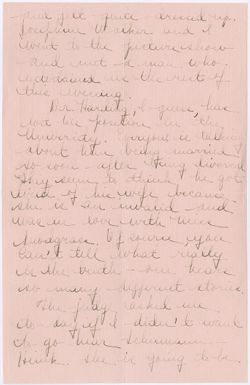 and felt quite dressed up.
Josephine and I
went to the picture show
and met a man who
entertained us the rest of
this evening.
Dr. Hardity, I guess has
lost his position in the
University. Everyone is talking
about him being married
so soon after being divorced
They seem to think he got
tired of his wife because
she is an invalid and
was in love with Miss
Snodgrass. Of course you
can't tell what really
is the truth - one hears
so many different stories.
She asked me
to-day if I didn't want
to go hear Schumann-
Heink. She is going to be